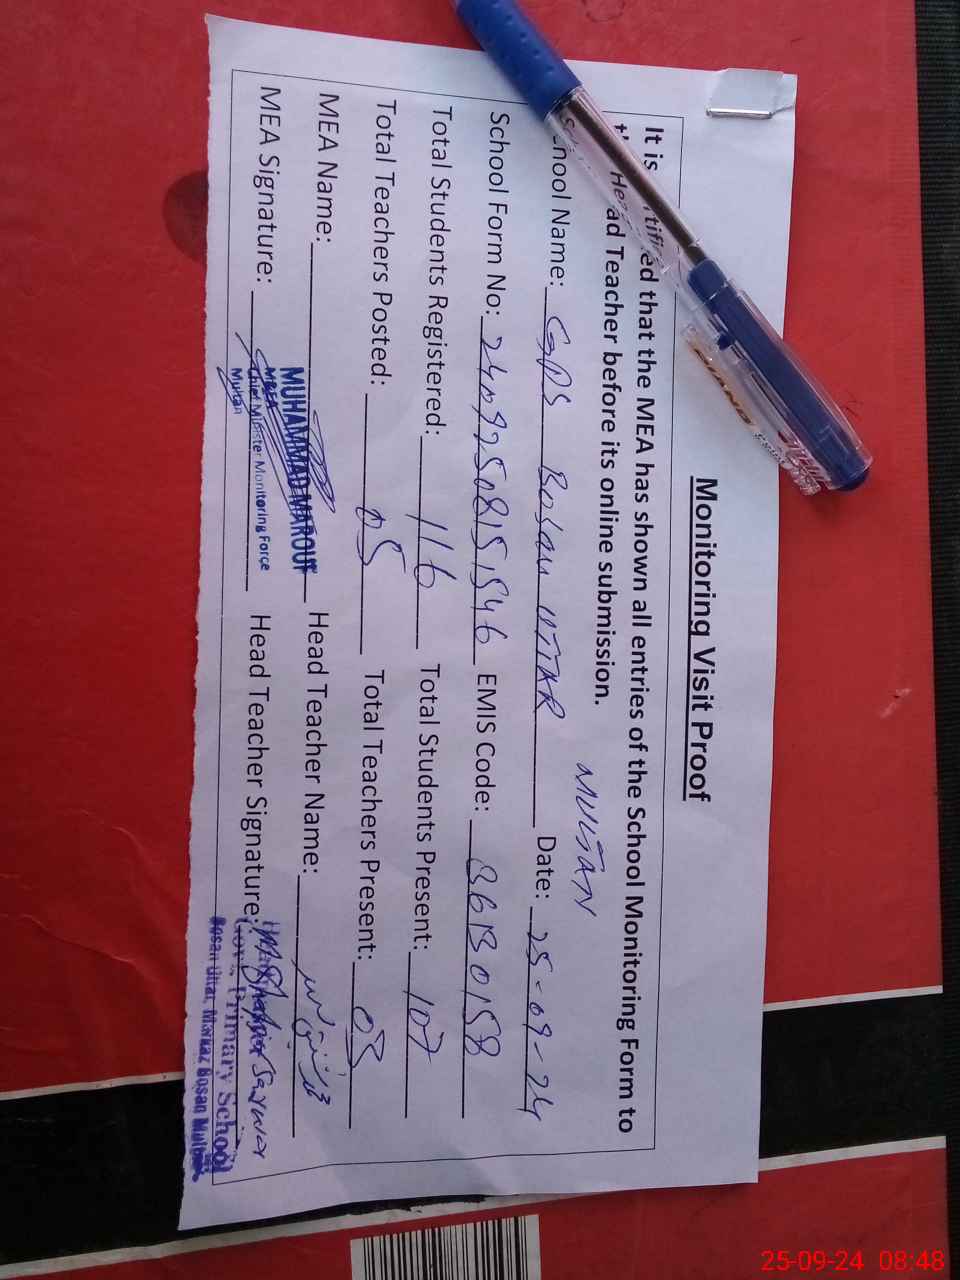 Monitoring Visit Proof
It is certified that the MEA has shown all entries of the School Monitoring Form to
the Head Teacher before its online submission.
MULTAN
School Name: GPS Bosan UTTAR Date: 25-09-24
School Form No: EMIS Code: 36130158
Total Students Registered: 116 Total Students Present: 107
Total Teachers Posted: 05 Total Teachers Present: 05
MEA Name: MUHAMMAD MAROUF Head Teacher Name:
MEA Signature: MEA Head Teacher Signature:
Chief Minister Monitoring Force
Multan
Govt. Primary School
Bosan Uttar, Markaz Bosan Multan
25-09-24 08:48